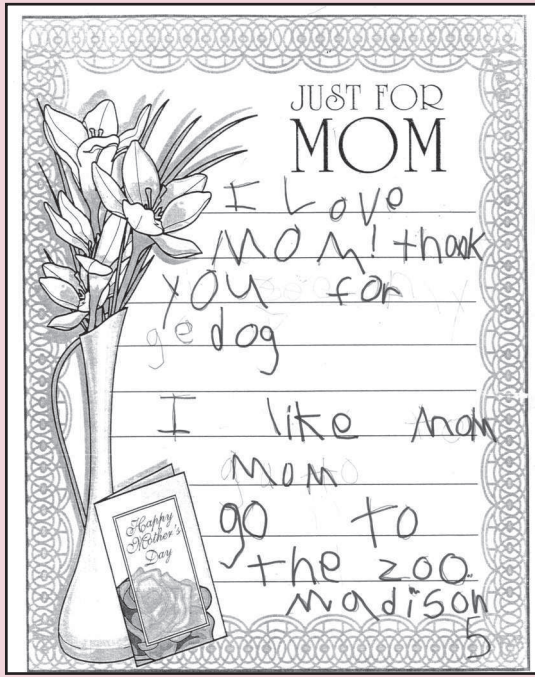 JUST FOR
MOM
I Love
MOM! thank
you for
ge dog
I like mom
mom
go to
the zoo.
Madison
5
Happy
Mother's
Day